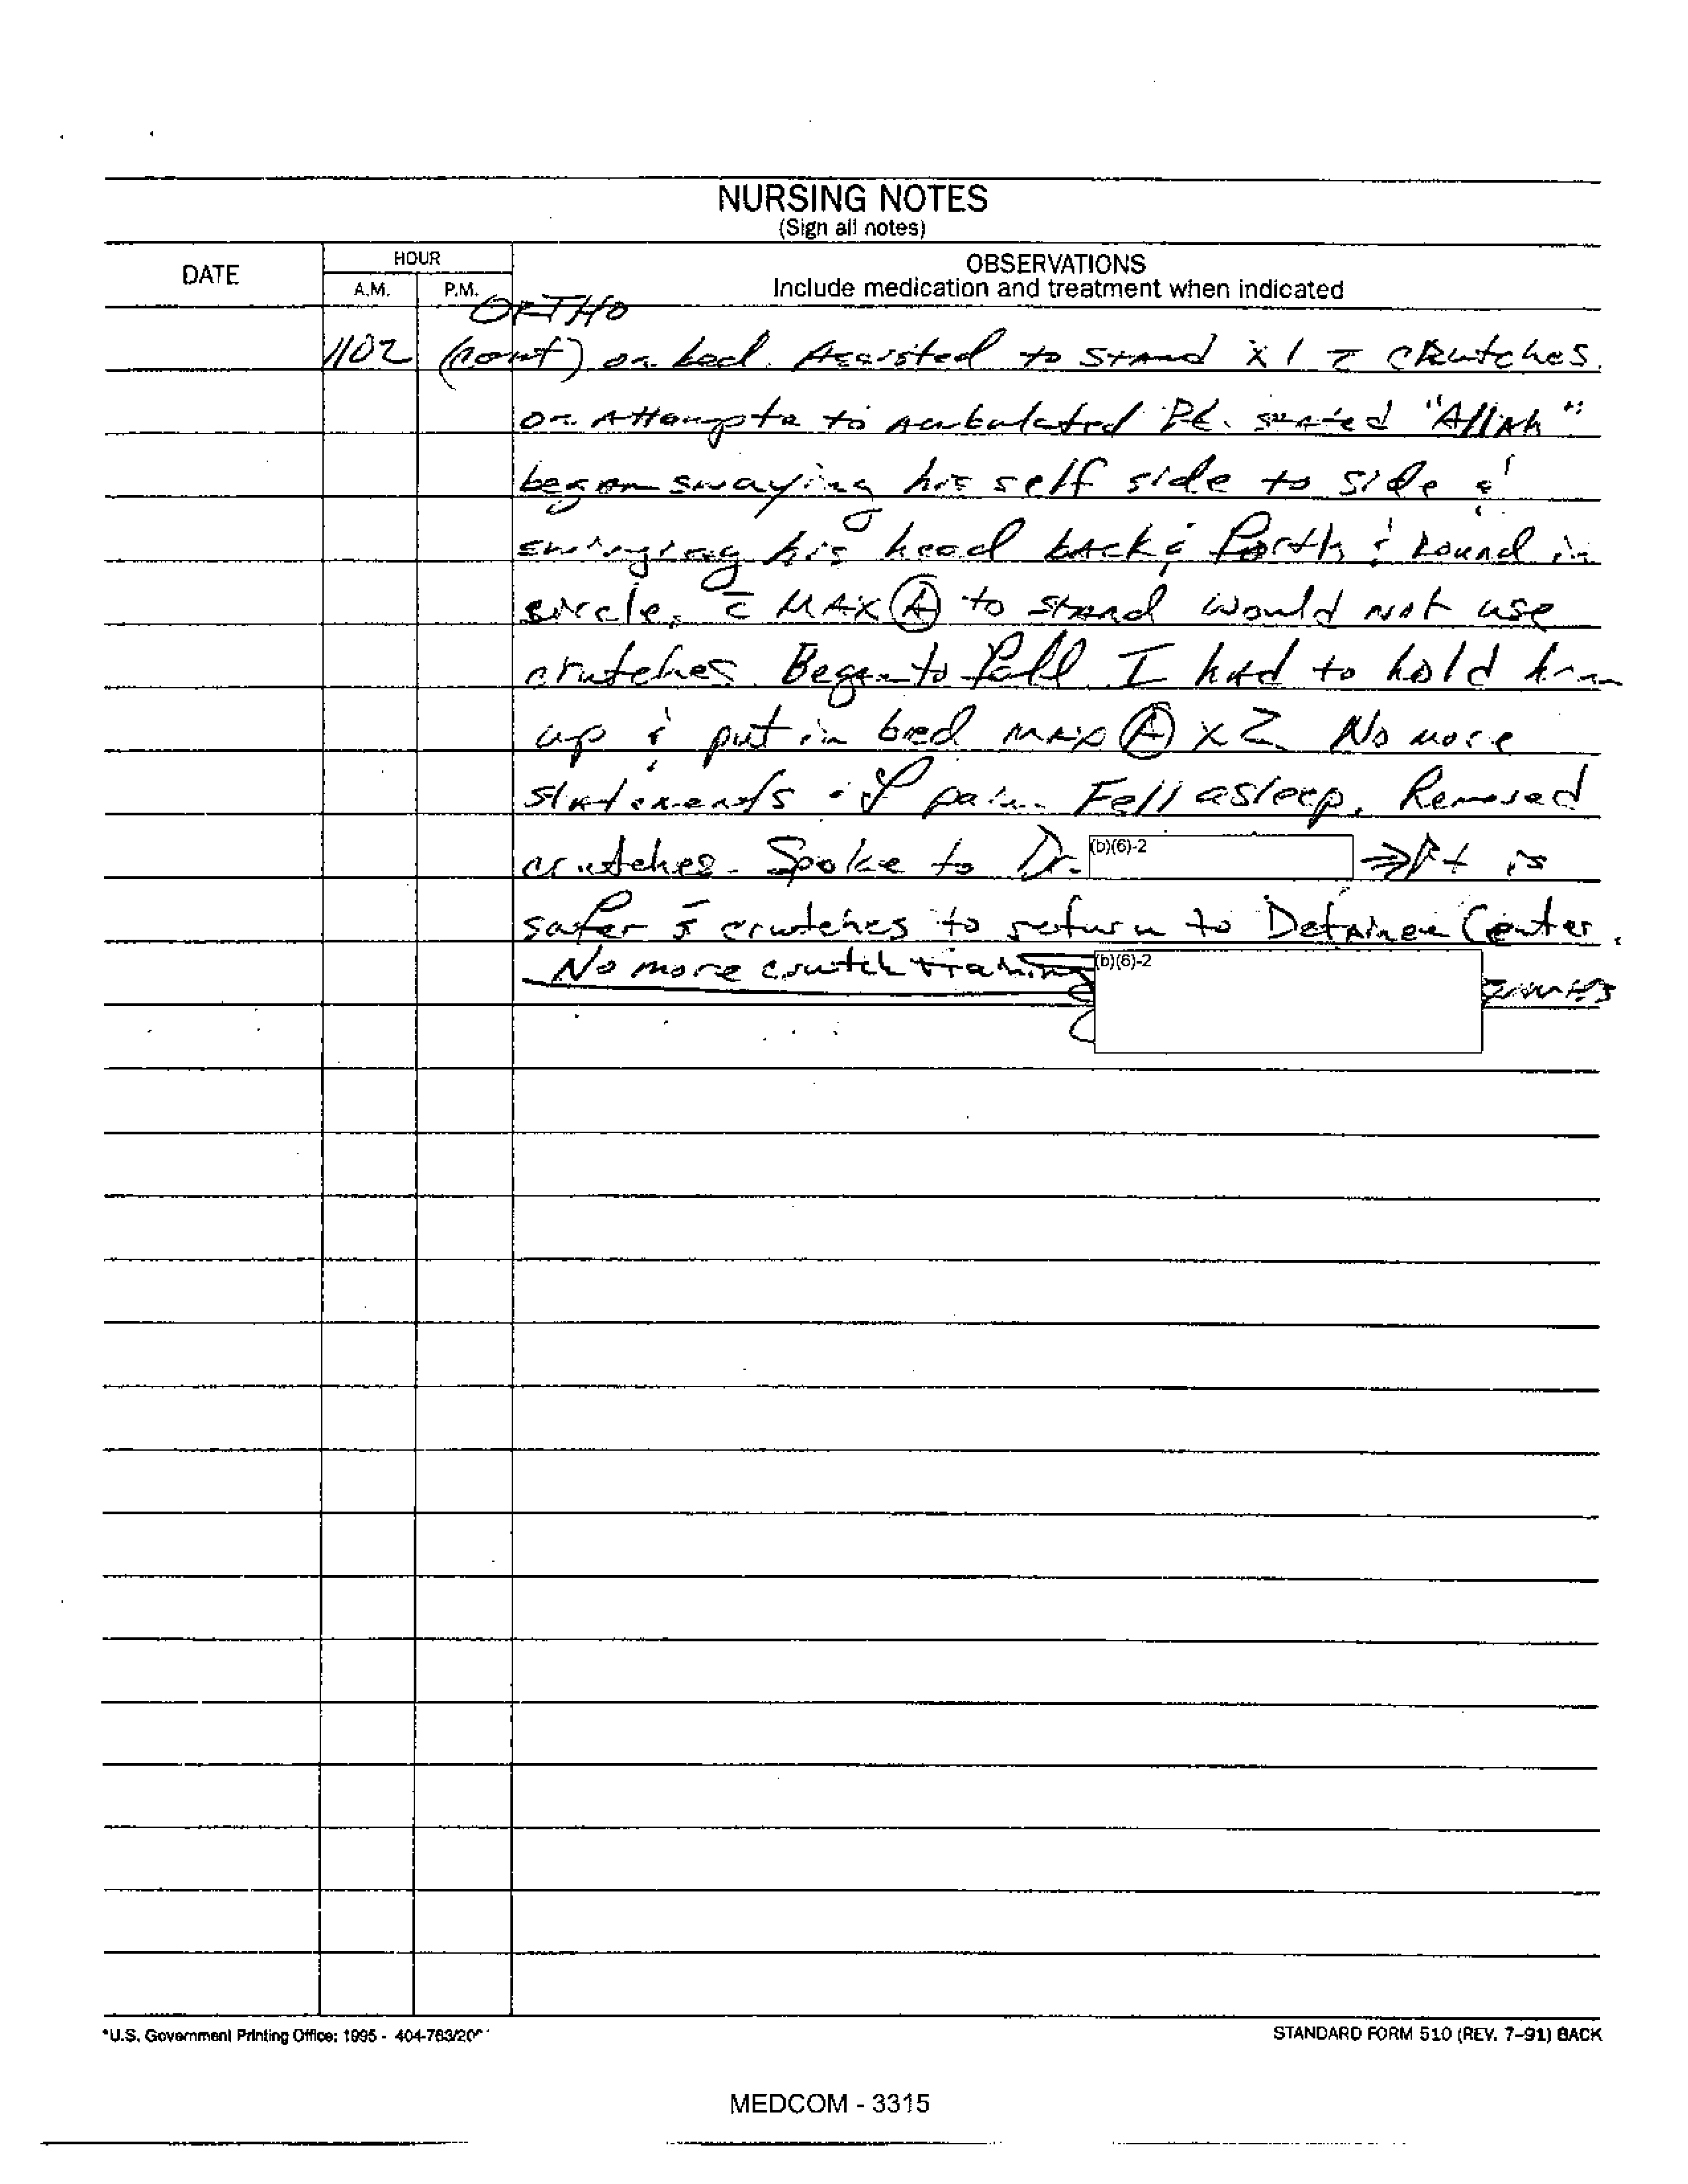 NURSING NOTES
(Sign all notes)
DATE
HOUR
A.M. P.M.
OBSERVATIONS
Include medication and treatment when indicated
ORTHO
1102 (cont) on bed. Assisted to stand x 1 c̄ crutches.
on Attempts to ambulated Pt. stated "Allah"
began swaying his self side to side &
swinging his head back & forth & round in
circle, c̄ MAX Ⓐ to stand would not use
crutches. Began to fall I had to hold him
up & put in bed max Ⓐ x 2 No more
statements of pain. Fell asleep. Removed
crutches. Spoke to Dr. (b)(6)-2 ⇒ Pt is
safer s̄ crutches to return to Detainee Center.
No more crutch training (b)(6)-2
*U.S. Government Printing Office: 1995 - 404-763/20
STANDARD FORM 510 (REV. 7-91) BACK
MEDCOM - 3315